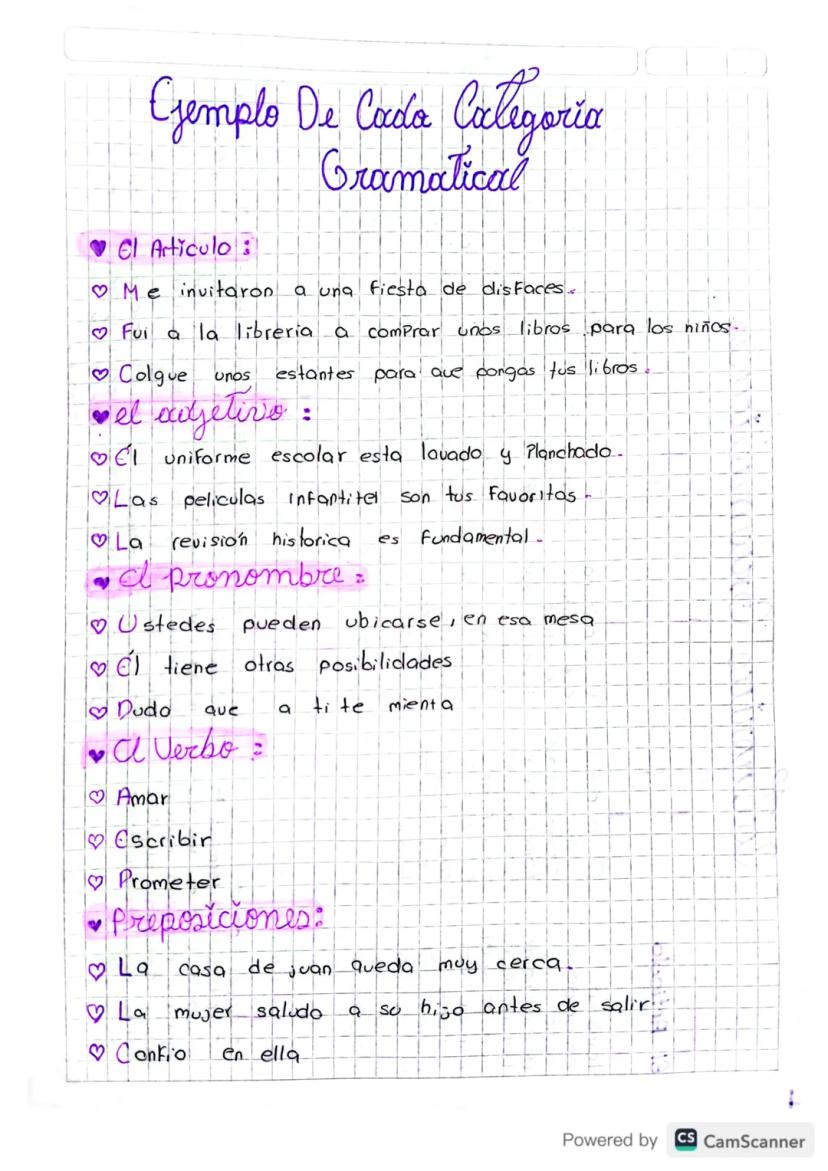 Ejemplo De Cada Categoría
Gramatical
El Artículo :
Me invitaron a una fiesta de disfaces.
Fui a la libreria a comprar unos libros para los niños.
Colgue unos estantes para que pongas tus libros.
el adjetivo :
Él uniforme escolar esta lavado y Planchado.
Las peliculas infantitel son tus Favoritas.
La revisión historica es Fundamental.
El pronombre :
Ustedes pueden ubicarse, en esa mesa
Él tiene otras posibilidades
Dudo que a ti te mienta
El Verbo :
Amar
Escribir
Prometer
Preposiciones:
La casa de juan queda muy cerca.
La mujer saludo a su hijo antes de salir
Confio en ella
Powered by CS CamScanner